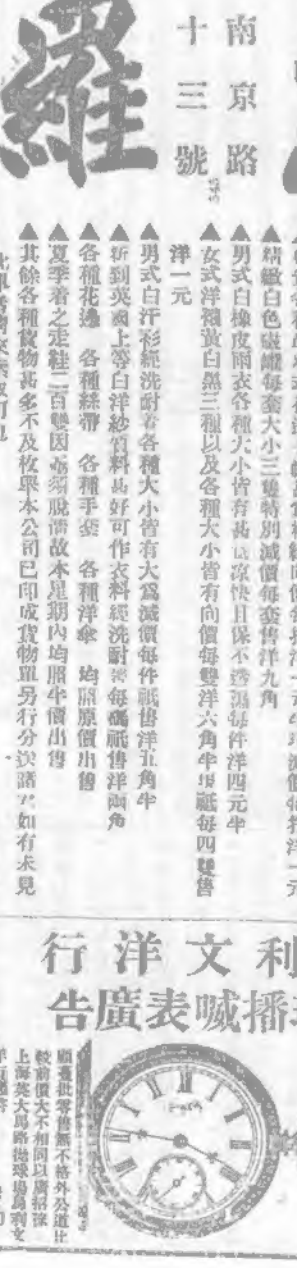 南京路
十三號
羅
精緻白色磁罐每套大小三隻特別減價每套售洋九角
▲男式白橡皮雨衣各種大小皆有甚為凉快且保不透濕每件洋四元半
▲女式洋襪黃白黑三種以及各種大小皆有向價每雙洋六角半現祗每四雙售
洋一元
▲男式白汗衫經洗耐着各種大小皆有大為減價每件祗售洋五角半
▲新到英國上等白洋紗質料甚好可作衣料經洗耐着每碼祗售洋兩角
▲各種花邊 各種絲帶 各種手套 各種洋傘 均照原價出售
▲夏季着之走鞋二百雙因亟須脫清故本星期內均照半價出售
▲其餘各種貨物甚多不及枚舉本公司已印成貨物單另行分送諸君如有未見
利文洋行
播喊表廣告
顧蓋批零售無不格外公道比
較前價大不相同以廣招徠
上海英大馬路拋球場烏利文